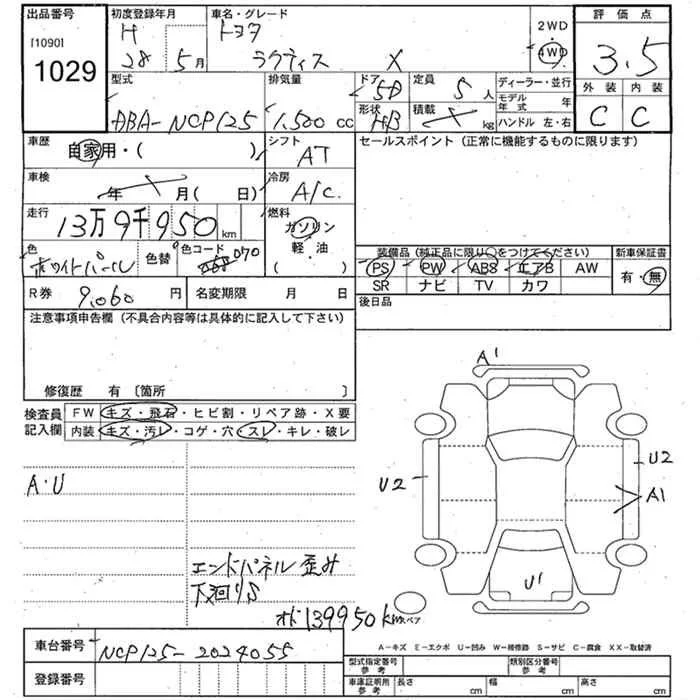 出品番号
[1090]
1029
初度登録年月
H 28 5月
車名・グレード
トヨタ
ラクティス X
2WD
4WD
評価点
3.5
外装 内装
C C
型式
DBA-NCP125
排気量
1,500 cc
ドア
5D
形状
HB
定員
5人
積載
kg
ディーラー・並行
モデル年式 年
ハンドル 左・右
車歴
自家用・( )
シフト
AT
セールスポイント (正常に機能するものに限ります)
車検
年 月( 日)
冷房
A/C
走行
13万9千950km
燃料
ガソリン
軽・油
( )
色
ホワイトパール
色替
色コード
070
装備品 (純正品に限り○をつけてください)
新車保証書
PS PW ABS エアB AW
SR ナビ TV カワ
有・無
R券 9,060 円
名変期限 月 日
後日品
注意事項申告欄 (不具合内容等は具体的に記入して下さい)
修復歴 有 〔箇所 〕
検査員記入欄
FW キズ・飛石・ヒビ割・リペア跡・X要
内装 キズ・汚レ・コゲ・穴・スレ・キレ・破レ
A・U
エンドパネル 歪み
下廻りS
オド139950km
A1
U2
U2
A1
U1
スペア
A-キズ E-エクボ U-凹み W-補修跡 S-サビ C-腐食 XX-取替済
車台番号
NCP125-2024055
登録番号
型式指定番号 参考
類別区分番号 参考
車庫証明用 参考
長さ cm
幅 cm
高さ cm